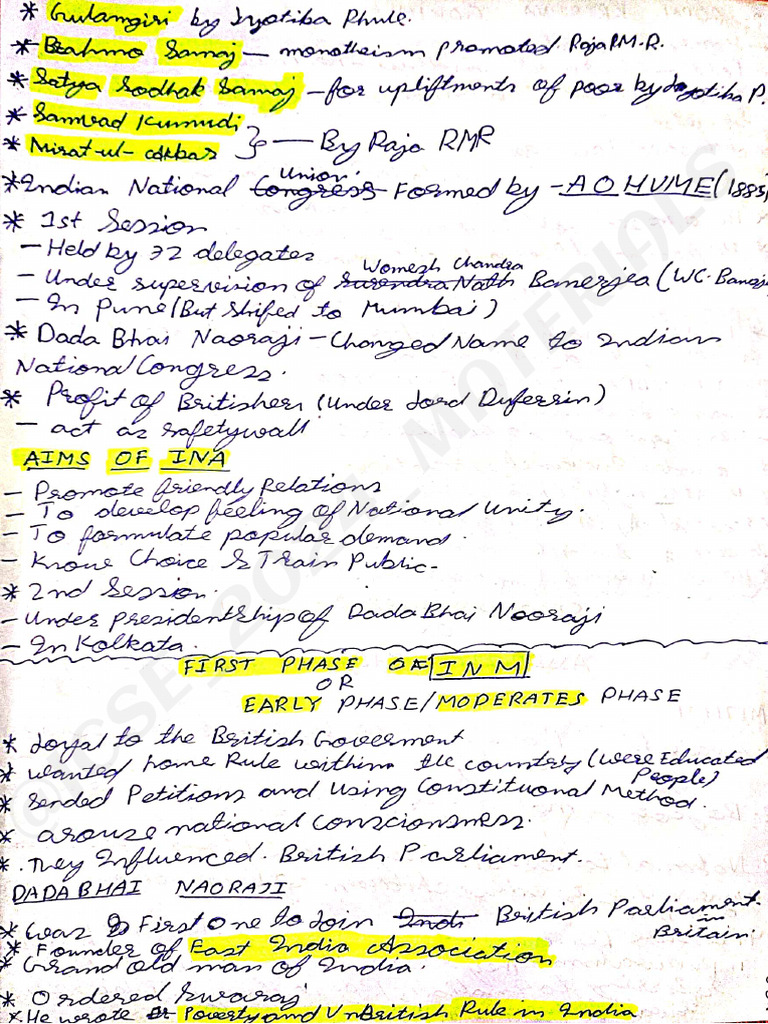 * Gulamgiri by Jyotiba Phule.
* Brahmo Samaj — monotheism promoted Raja RM.R.
* Satya Sodhak Samaj — for upliftments of poor by Jyotiba P.
* Samvad Kumudi
* Mirat-ul-akbar } — By Raja RMR
Union
* Indian National Congress Formed by - A O HUME (1885)
* 1st Session
- Held by 72 delegates
Womesh Chandra
- Under supervision of Surendra Nath Banerjea (WC. Banerj
- In Pune (But Shifed to Mumbai)
* Dada Bhai Naoraji - Changed Name to Indian
National Congress.
* Profit of Britishers (Under Lord Dufferin)
- act as safetywall
AIMS OF INA
- Promote friendly Relations
- To develop feeling of National Unity.
- To formulate popular demand.
- Know Choice & Train Public-
* 2nd Session.
- Under presidentship of Dada Bhai Nooraji
- In Kolkata.
FIRST PHASE OF INM
OR
EARLY PHASE/MODERATES PHASE
* Loyal to the British Goverment
* wanted home Rule within the country (were Educated
People)
* Sended Petitions and Using Constituonal Method.
* arouse national consciousness.
* They Influenced British Parliament.
DADABHAI NAORAJI
* was First One to Join Indi British Parliament
in
Britain.
* Founder of East India Association
* Grand old man of India.
* Ordered Swaraj
* He wrote Poverty and UnBritish Rule in India
@ICSE_2024_MOTERIALS